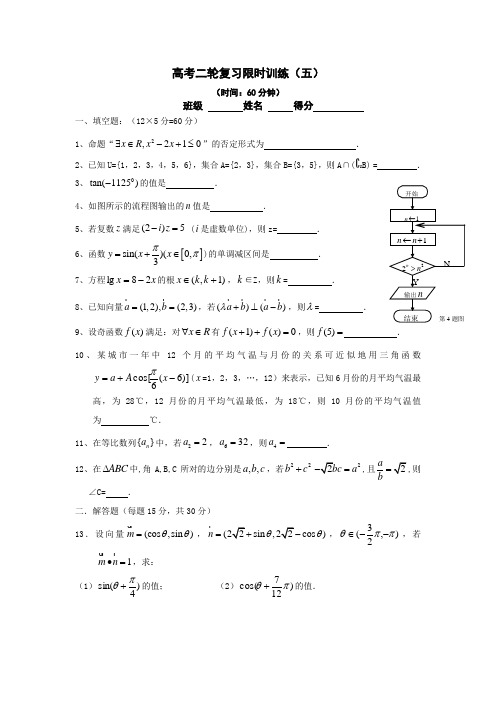 高考二轮复习限时训练（五）
（时间：60分钟）
班级 姓名 得分
一、填空题：(12×5分=60分)
1、命题“∃x∈R, x²-2x+1≤0”的否定形式为 .
2、已知U={1，2，3，4，5，6}，集合A={2，3}，集合B={3，5}，则A∩(∁ᵤB) = .
3、tan(-1125⁰)的值是 .
4、如图所示的流程图输出的n值是 .
5、若复数z满足(2-i)z=5 （i是虚数单位），则z= .
6、函数y=sin(x+π/3)(x∈[0,π])的单调减区间是 .
7、方程lg x=8-2x的根x∈(k,k+1)，k∈z，则k= .
8、已知向量a=(1,2),b=(2,3)，若(λa+b)⊥(a-b)，则λ= .
9、设奇函数f(x)满足：对∀x∈R有f(x+1)+f(x)=0，则f(5)= .
10、某城市一年中12个月的平均气温与月份的关系可近似地用三角函数
y=a+Acos[π/6(x-6)]（x=1，2，3，…，12）来表示，已知6月份的月平均气温最
高，为28℃，12月份的月平均气温最低，为18℃，则10月份的平均气温值
为 ℃.
11、在等比数列{aₙ}中，若a₂=2，a₆=32，则a₄= .
12、在ΔABC中,角A,B,C所对的边分别是a,b,c，若b²+c²-√2bc=a²,且a/b=√2,则
∠C= .
二．解答题（每题15分，共30分）
13．设向量m=(cosθ,sinθ)，n=(2√2+sinθ,2√2-cosθ)，θ∈(-3/2π,-π)，若
m•n=1，求：
（1）sin(θ+π/4)的值； （2）cos(θ+7/12π)的值.
开始
n←1
n←n+1
2ⁿ>n²
N
Y
输出n
结束
第4题图